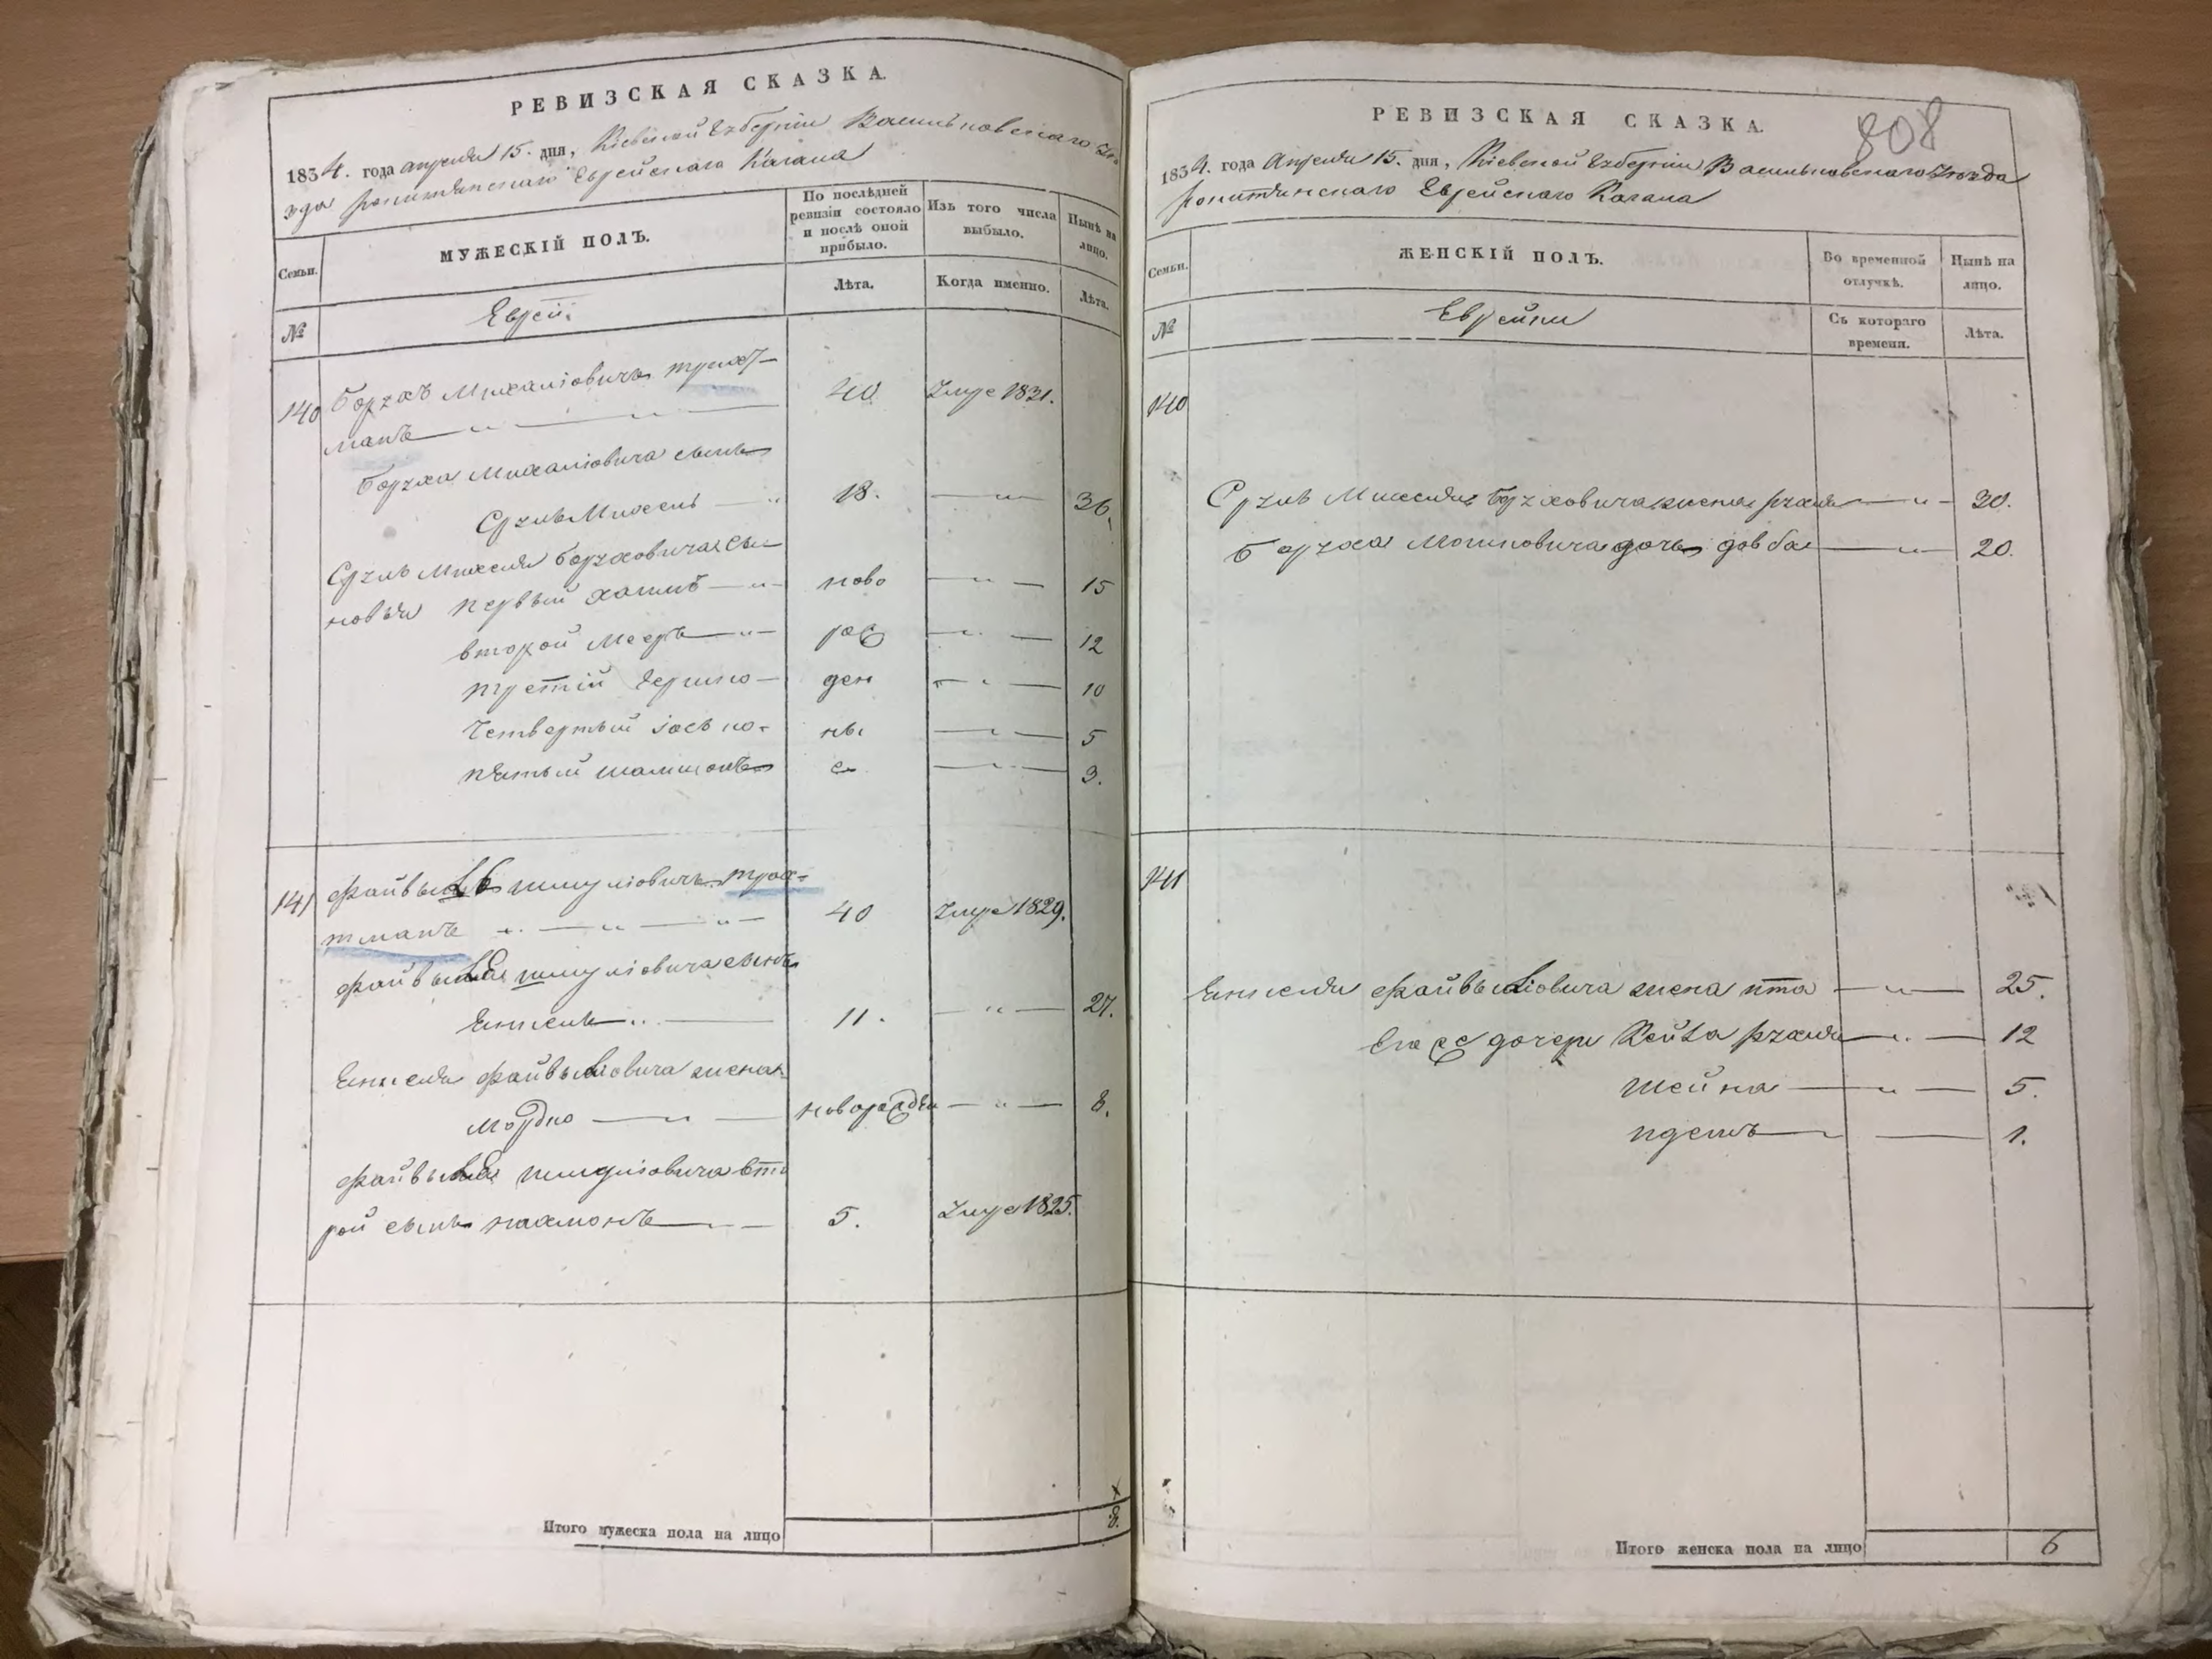 РЕВИЗСКАЯ СКАЗКА.
1834. года апреля 15. дня, Кіевской Губерніи Васильковскаго Уѣ
зда Рокитянскаго Еврейскаго Кагала
Семьи.
МУЖЕСКІЙ ПОЛЪ.
По послѣдней ревизіи состояло и послѣ оной прибыло.
Изъ того числа выбыло.
Нынѣ на лицо.
Лѣта.
Когда именно.
Лѣта.
№
Евреи.
140 Борухъ Михаліовичъ Трахт-
манъ 40 Умре 1831.
Боруха Михаліовича сынъ
Сруль Михель 18. 36.
Сруль Михеля Боруховича сы
новья первый Хаимъ ново 15
второй Мееръ рож 12
третій Гершко ден 10
четвертый Іось ко ны 5
пятый Шамшонъ е 3.
141 Файвыш Шмуліовичъ Трах-
тманъ 40 Умре 1829.
Шмуліовича сынъ
11. 27.
Мордко новорожден 8.
Шмуліовича вто
рой сынъ Нахмонъ 5. Умре 1825.
Итого мужеска пола на лицо 8.
РЕВИЗСКАЯ СКАЗКА.
808
1834. года Апреля 15. дня, Кіевской Губерніи Васильковскаго Уѣзда
Рокитянскаго Еврейскаго Кагала
Семьи.
ЖЕНСКІЙ ПОЛЪ.
Во временной отлучкѣ.
Нынѣ на лицо.
№
Еврейки
Съ котораго времени.
Лѣта.
140
Сруль Михеля Боруховича жена Рухля 30.
Боруха Мошковича дочь Довба 20.
141
жена Ита 25.
Его дочери Рухля 12
Шейна 5.
1.
Итого женска пола на лицо 6